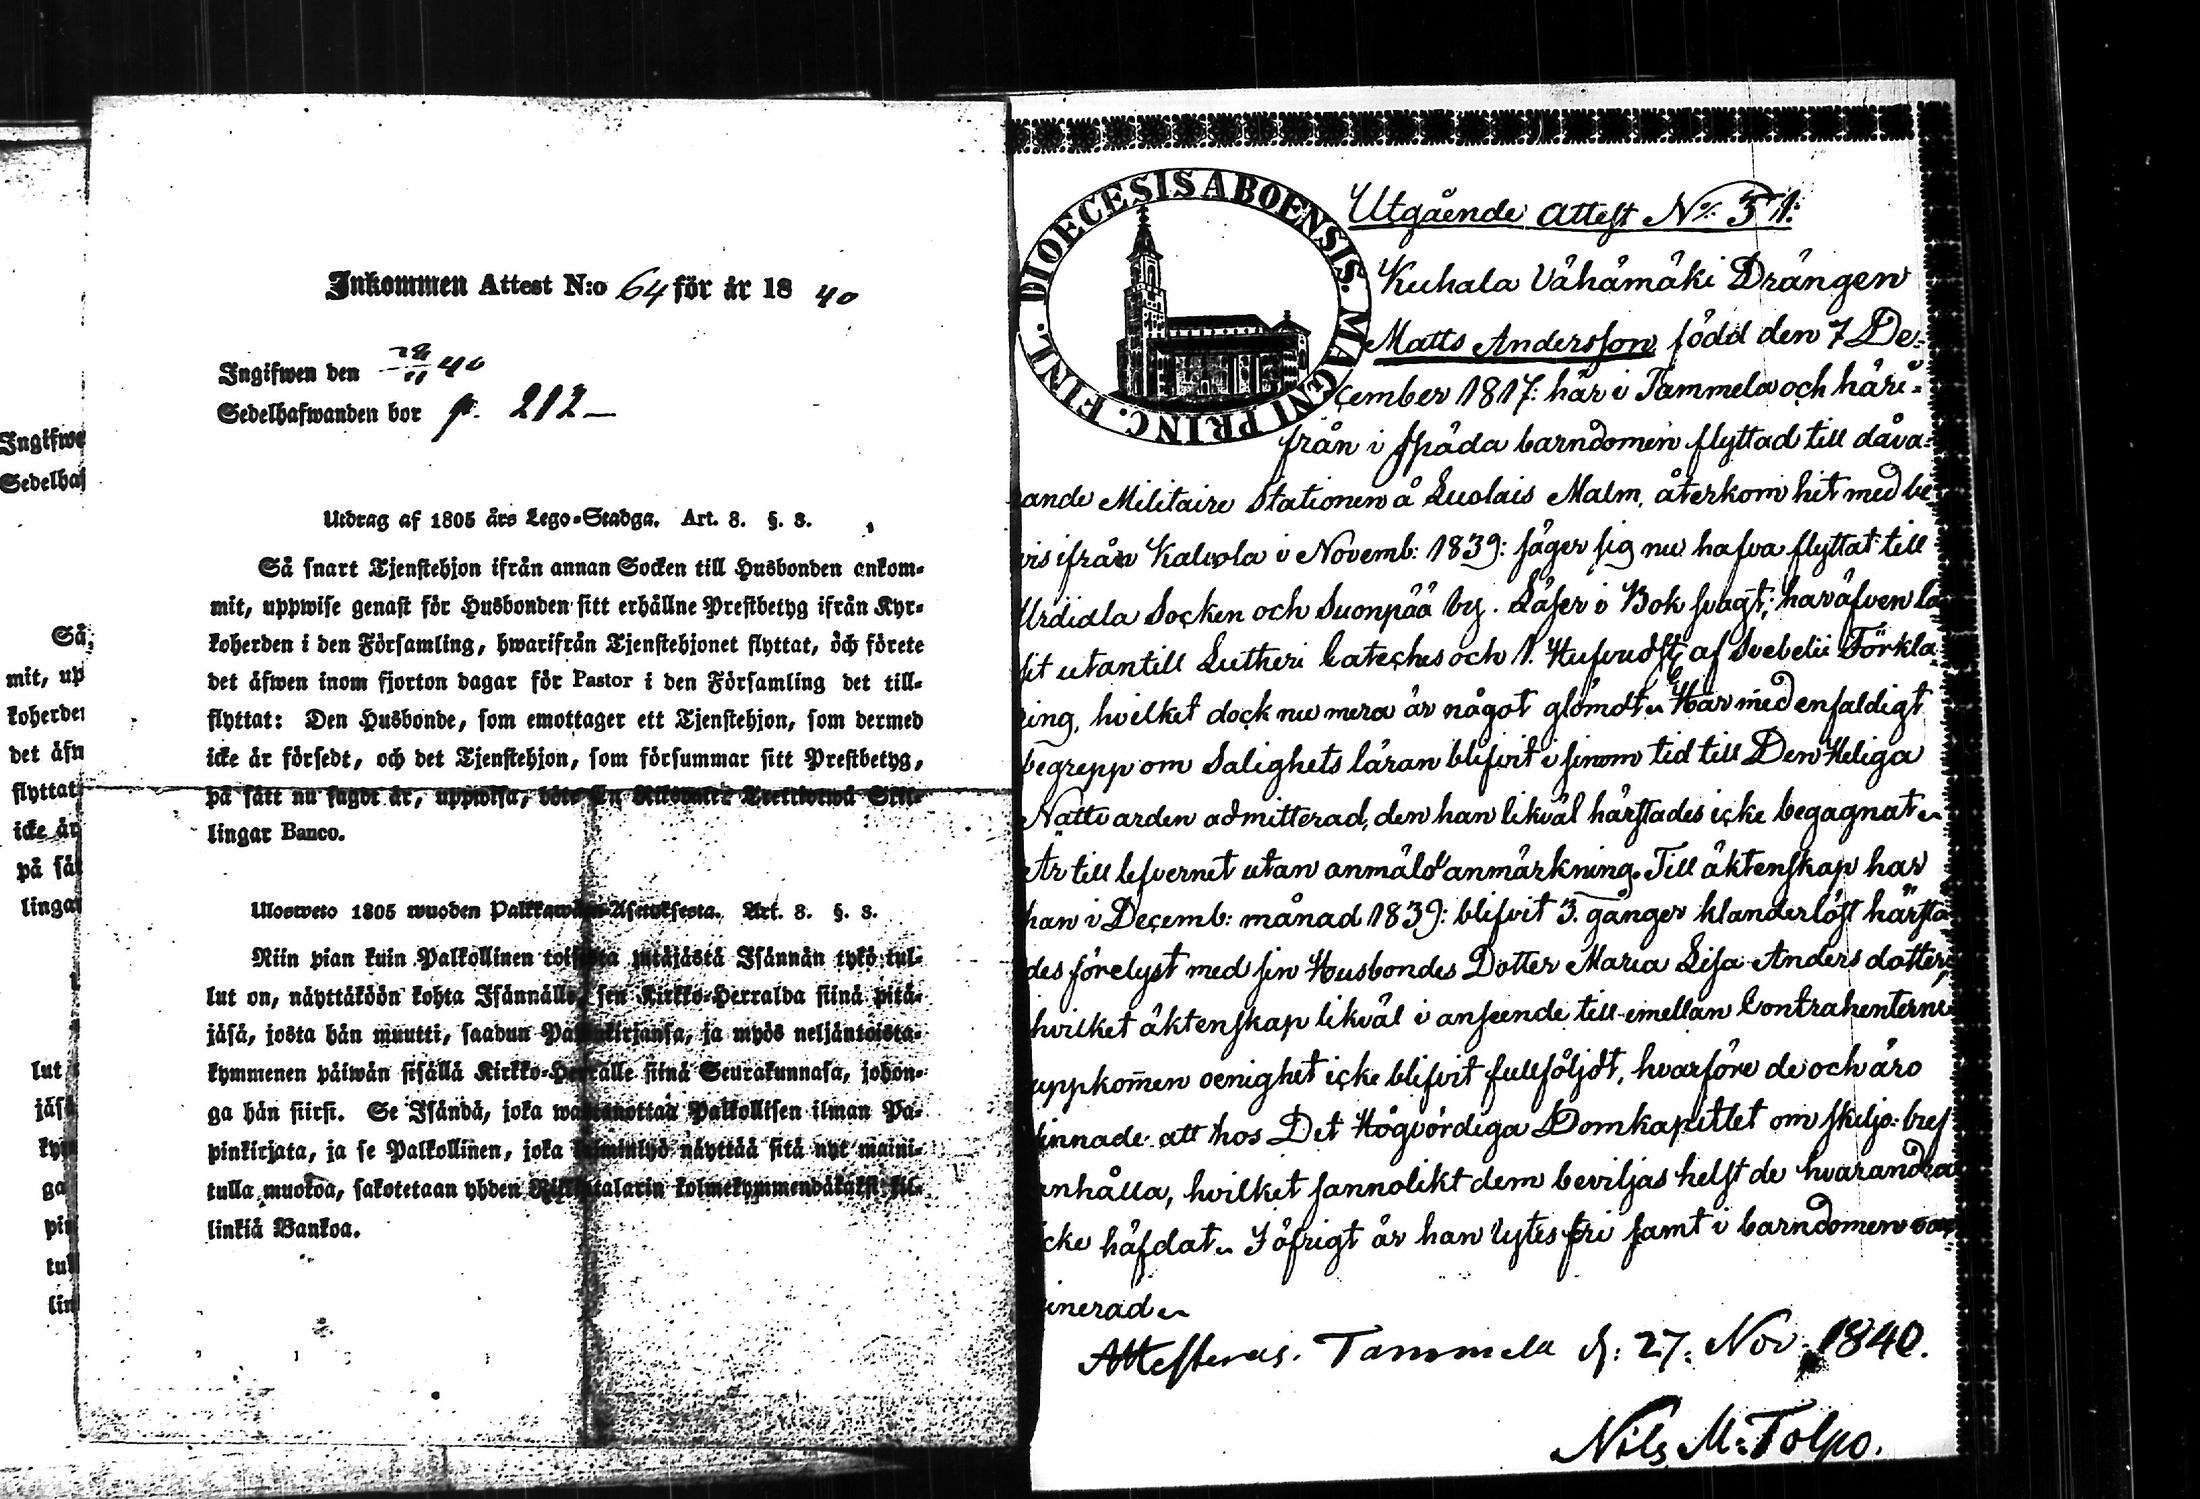 Inkommen Attest N:o 64 för år 1840
Ingifwen den 28/11 40
Sedelhafwanden bor p. 212
Utdrag af 1805 års Lego-Stadga. Art. 8. §. 8.
Så snart Tjenstehjon ifrån annan Socken till Husbonden ankom-
mit, uppwise genast för Husbonden sitt erhållne Prestbetyg ifrån Kyr-
koherden i den Församling, hwarifrån Tjenstehjonet flyttat, och förete
det äfwen inom fjorton dagar för Pastor i den Församling det till-
flyttat: Den Husbonde, som emottager ett Tjenstehjon, som dermed
icke är försedt, och det Tjenstehjon, som försummar sitt Prestbetyg,
på sätt nu sagdt är, uppwisa, böte En Riksdaler Trettiotwå Skil-
lingar Banco.
Ulosweto 1805 wuoden Palkkawäen-Asetuksesta. Art. 8. §. 8.
Niin pian kuin Palkollinen toisesta pitäjästä Isännän tykö tul-
lut on, näyttäköön kohta Isännälle, sen Kirkko-Herralda siinä pitä-
jäsä, josta hän muutti, saadun Papinkirjansa, ja myös neljäntoista-
kymmenen päiwän sisällä Kirkko-Herralle siinä Seurakunnasa, johon-
ga hän siirsi. Se Isändä, joka wastanottaa Palkollisen ilman Pa-
pinkirjata, ja se Palkollinen, joka laiminlyö näyttää sitä nyt maini-
tulla muotoa, sakotetaan yhden Riksitalarin kolmekymmendäkaksi kil-
linkiä Bankoa.
FINL. DIOECESIS ABOENSIS. MAGNI PRINC.
Utgående Attest No. 51.
Kuhala Vähämäki Drängen
Matts Andersson, född den 7 De-
cember 1817: här i Tammela och häri-
från i späda barndomen flyttad till dåva-
rande Militaire Stationen å Luolais Malm, återkom hit med be-
vis ifrån Kalvola i Novemb: 1839: säger sig nu hafva flyttat till
Urdiala Socken och Suonpää by. Läser i Bok svagt; har äfven lä-
sit utantill Lutheri Cateches och 1. Hufvudst. af Svebelii Förkla-
ring, hvilket dock nu mera är något glömdt. Har med enfaldigt
begrepp om Salighets läran blifvit i sinom tid till Den Heliga
Nattvarden admitterad, den han likväl härstädes icke begagnat.
Är till lefvernet utan anmäld anmärkning. Till äktenskap har
han i Decemb: månad 1839: blifvit 3. gånger klanderlöst härstä-
des förelyst med sin Husbondes Dotter Maria Lisa Anders dotter,
hvilket äktenskap likväl i anseende till emellan Contrahenterne
uppkommen oenighet icke blifvit fullföljdt, hvarföre de och äro
sinnade att hos Det Högvördiga Domkapitlet om skiljo-bref
anhålla, hvilket sannolikt dem beviljas helst de hvarandra
icke häfdat. I öfrigt är han lytes fri samt i barndomen vac-
cinerad.
Attesteras. Tammela d: 27. Nov. 1840.
Nils M. Tolpo.